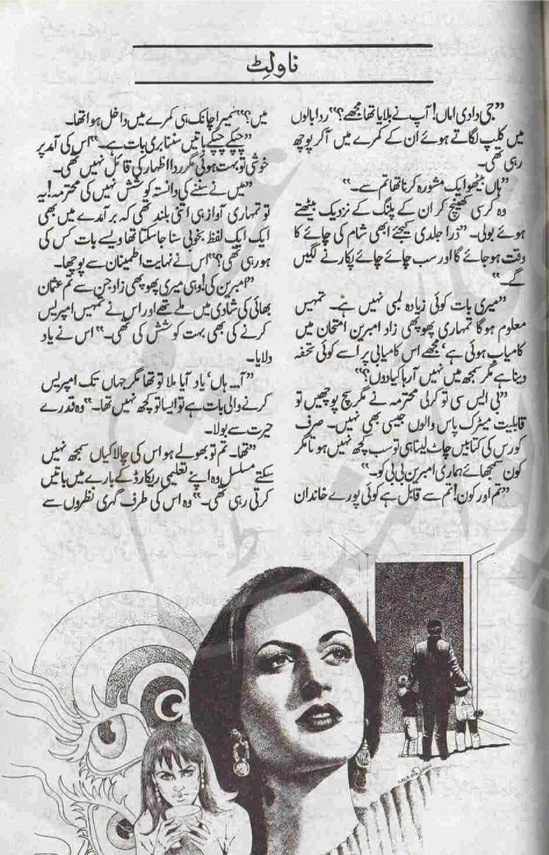 ناولٹ
”جی دادی اماں! آپ نے بلایا تھا مجھے؟“ ردا بالوں
میں کلپ لگاتے ہوئے ان کے کمرے میں آکر پوچھ
رہی تھی۔
”ہاں بیٹھو ایک مشورہ کرنا تھا تم سے۔“
وہ کرسی کھینچ کر ان کے پلنگ کے نزدیک بیٹھتے
ہوئے بولی۔ ”ذرا جلدی کیجئے ابھی شام کی چائے کا
وقت ہو جائے گا اور سب چائے چائے پکارنے لگیں
گے۔“
”میری بات کوئی زیادہ لمبی نہیں ہے۔ تمہیں
معلوم ہو گا تمہاری پھوپھی زاد امبرین امتحان میں
کامیاب ہوئی ہے، مجھے اس کامیابی پر اسے کوئی تحفہ
دینا ہے مگر سمجھ میں نہیں آرہا کیا دوں؟“
”بی ایس سی تو کرلی محترمہ نے مگر سچ پوچھیں تو
قابلیت میٹرک پاس والوں جیسی بھی نہیں۔ صرف
کورس کی کتابیں چاٹ لینا ہی تو سب کچھ نہیں ہوتا مگر
کون سمجھائے ہماری امبرین بی بی کو۔“
”تم اور کون! تم سے قابل ہے کوئی پورے خاندان
میں؟“ سمیر اچانک ہی کمرے میں داخل ہوا تھا۔
”چپکے چپکے باتیں سننا بری بات ہے۔“ اس کی آمد پر
خوشی تو بہت ہوئی مگر ردا اظہار کی قائل نہیں تھی۔
”میں نے سننے کی دانستہ کوشش نہیں کی محترمہ! یہ
تو تمہاری آواز ہی اتنی بلند تھی کہ برآمدے میں بھی
ایک ایک لفظ بخوبی سنا جاسکتا تھا ویسے بات کس کی
ہو رہی تھی؟“ اس نے نہایت اطمینان سے پوچھا۔
”امبرین کی! وہی میری پھوپھی زاد جن سے تم عثمان
بھائی کی شادی میں ملے تھے اور اس نے تمہیں امپریس
کرنے کی بھی بہت کوشش کی تھی۔“ اس نے یاد
دلایا۔
”آ۔ ہاں‘ یاد آیا ملا تو تھا مگر جہاں تک امپریس
کرنے والی بات ہے تو ایسا تو کچھ نہیں تھا۔“ وہ قدرے
حیرت سے بولا۔
”تھا۔ تم تو بھولے ہو اس کی چالاکیاں سمجھ نہیں
سکتے مسلسل وہ اپنے تعلیمی ریکارڈ کے بارے میں باتیں
کرتی رہی تھی۔“ وہ اس کی طرف گہری نظروں سے